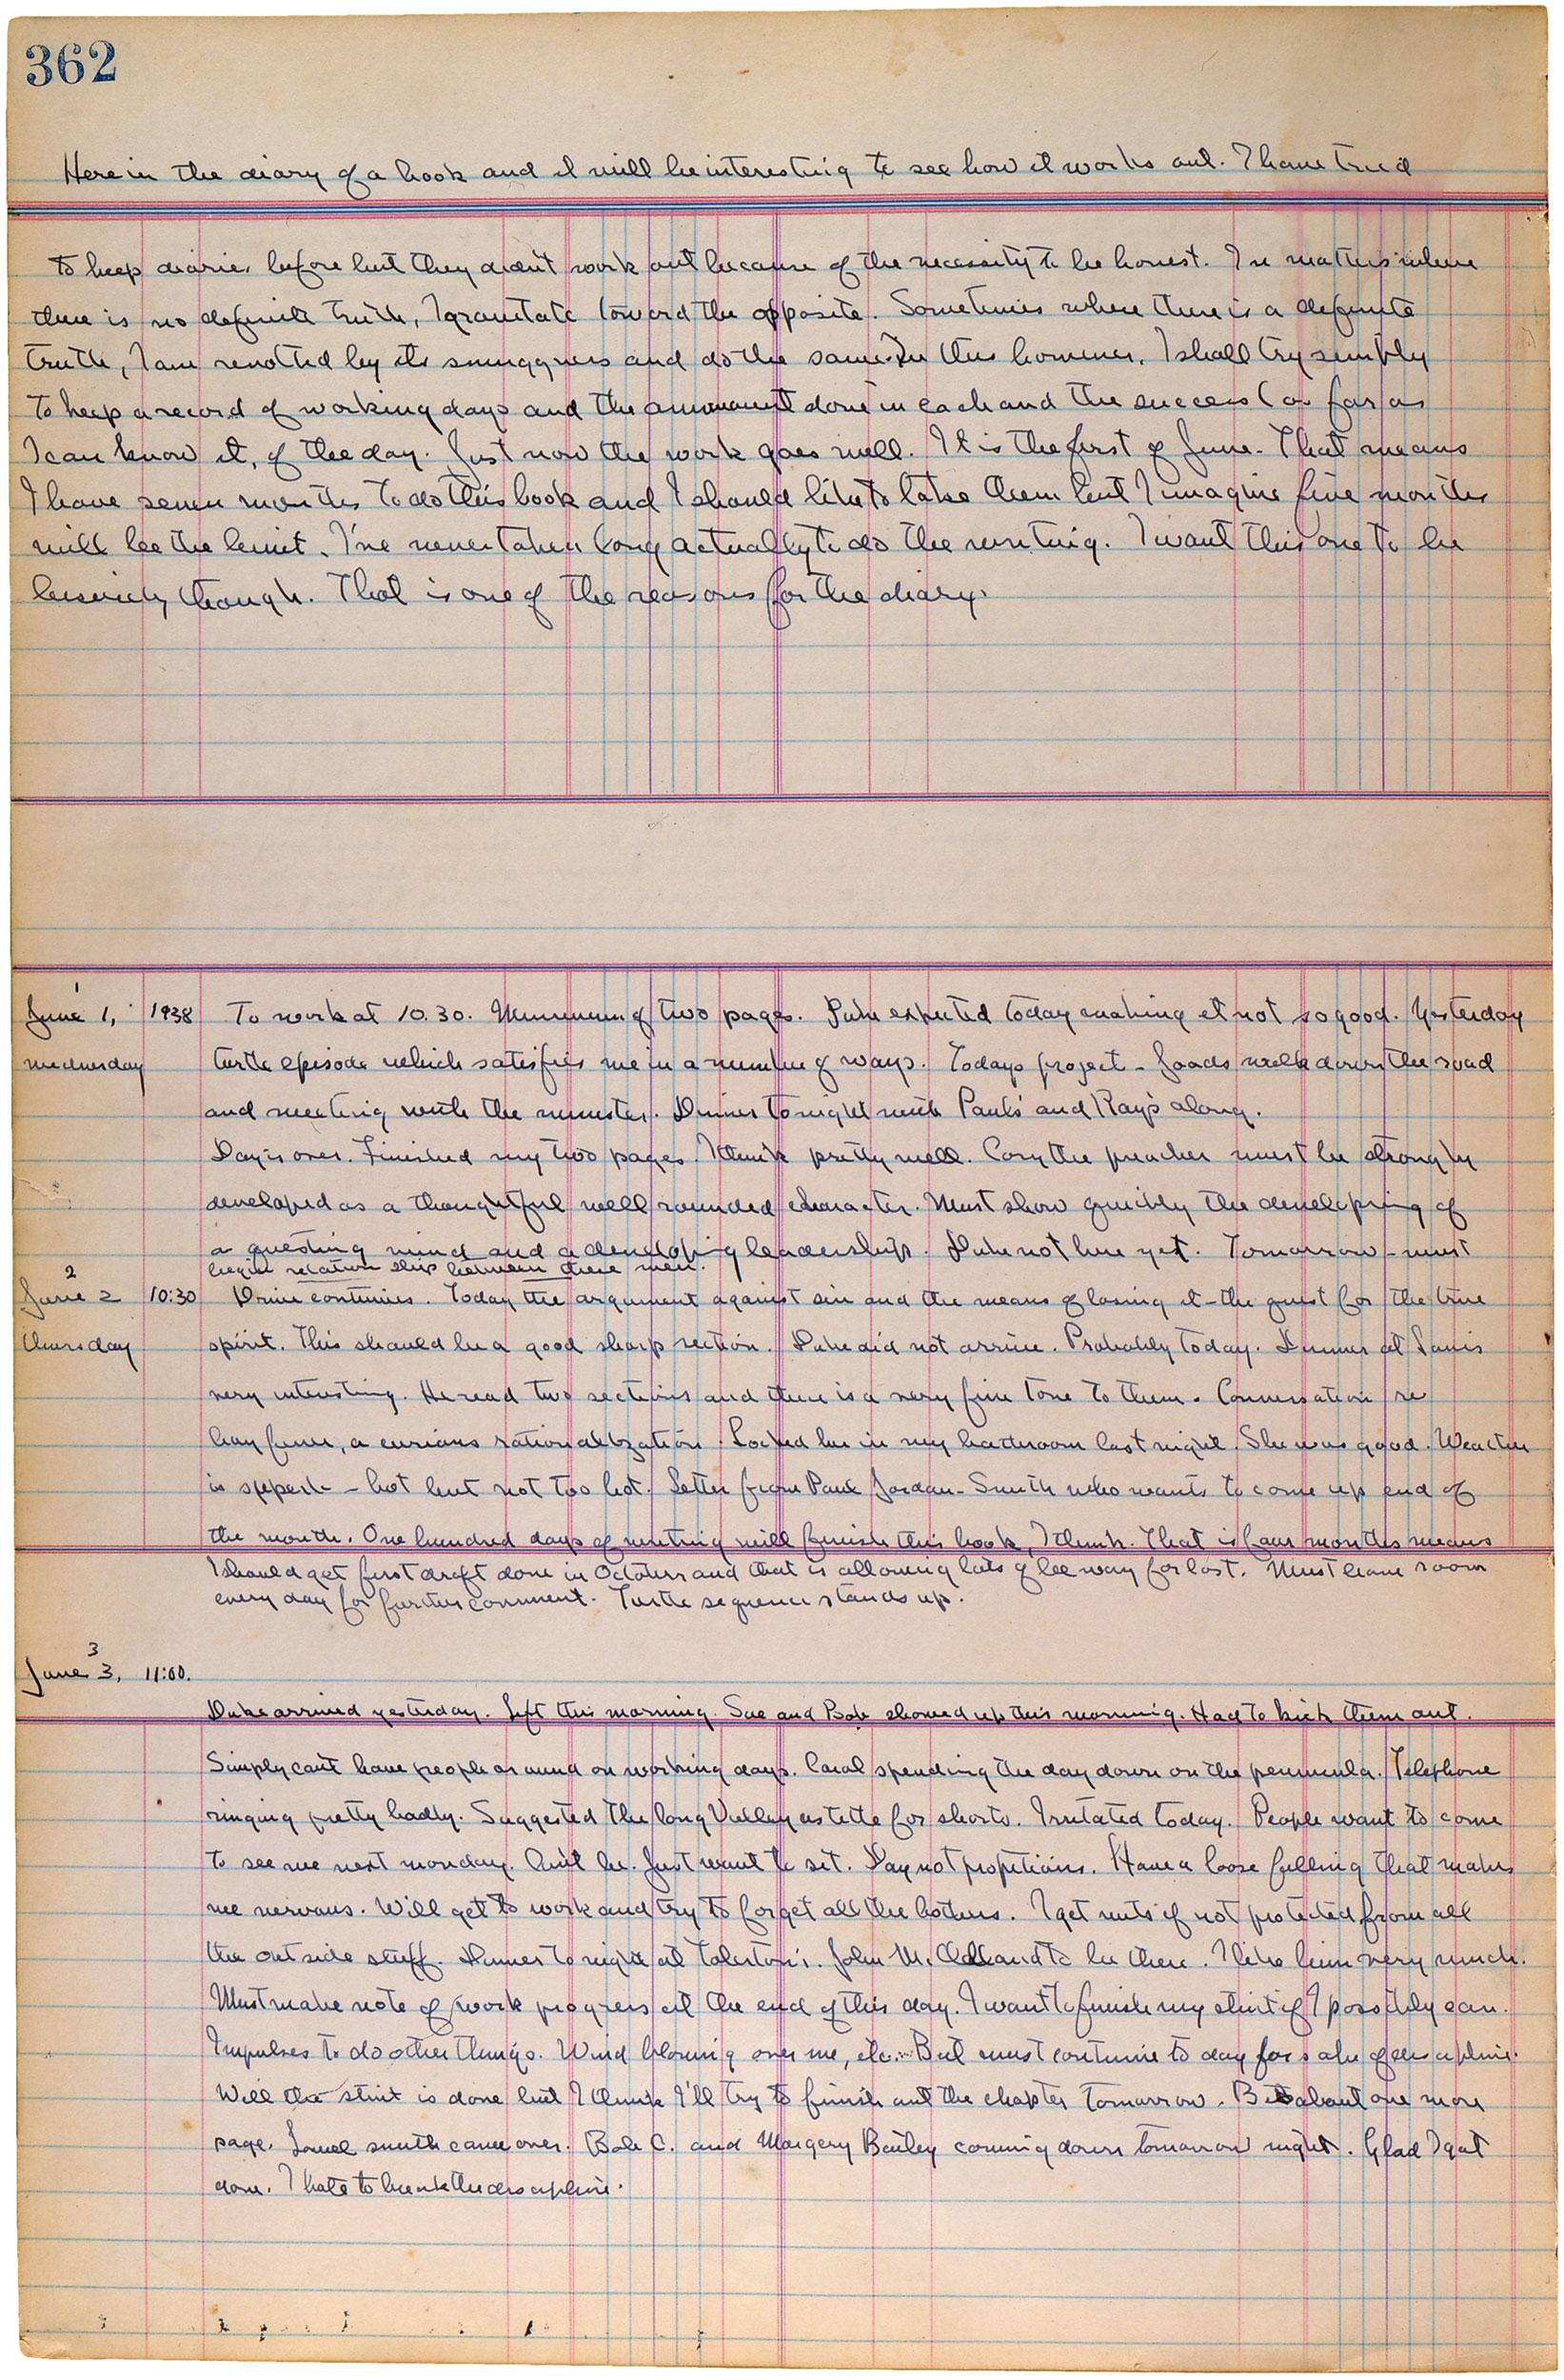 362
Here in the diary of a book and it will be interesting to see how it works out. I have tried
to keep diaries before but they didn't work out because of the necessity to be honest. In matters where
there is no definite truth, I gravitate toward the opposite. Sometimes where there is a definite
truth, I am revolted by its smugness and do the same. In this however, I shall try simply
to keep a record of working days and the amount done in each and the success (as far as
I can know it, of the day. Just now the work goes well. It is the first of June. That means
I have seven months to do this book and I should like to take them but I imagine five months
will be the limit. I've never taken long actually to do the writing. I want this one to be
leisurely though. That is one of the reasons for the diary.
1
June 1, 1938 To work at 10.30. Minimum of two pages. Duke expected today making it not so good. Yesterday
wednesday turtle episode which satisfies me in a number of ways. Todays project - Joads walk down the road
and meeting with the minister. Dinner tonight with Pauls' and Ray's along.
Day is over. Finished my two pages. I think pretty well. Casy the preacher must be strongly
developed as a thoughtful well rounded character. Must show quickly the developing of
a questing mind and a developing leadership. Duke not here yet. Tomorrow - must
begin relation ship between these men.
2
June 2 10:30 Drive continues. Today the argument against sin and the means of losing it - the quest for the true
thursday spirit. This should be a good sharp section. Duke did not arrive. Probably today. Dinner at Louis
very interesting. He read two sections and there is a very fine tone to them. Conversation re
hay fever, a curious rationalization. Locked her in my bathroom last night. She was good. Weather
is superb - hot but not too hot. Letter from Paul Jordan-Smith who wants to come up end of
the month. One hundred days of writing will finish this book, I think. That is four months means
I should get first draft done in October and that is allowing lots of lee way for lost. Must leave room
every day for further comment. Turtle sequence stands up.
3
June 3, 11:00.
Duke arrived yesterday. Left this morning. Sue and Bob showed up this morning. Had to kick them out.
Simply can't have people around on working days. Carol spending the day down on the peninsula. Telephone
ringing pretty badly. Suggested The Long Valley as title for shorts. Irritated today. People want to come
to see me next monday. Can't be. Just want to sit. Day not propitious. Have a loose feeling that makes
me nervous. Will get to work and try to forget all the bothers. I get nuts if not protected from all
the out side stuff. Dinner to night at Tolerton's. John M. to be there. I like him very much.
Must make note of work progress at the end of this day. I want to finish my stint if I possibly can.
Impulses to do other things. Wind blowing over me, etc. But must continue to day for sake of discipline.
Well the stint is done but I think I'll try to finish out the chapter tomorrow. But about one more
page. smith came over. Bob C. and Margery Bailey coming down tomorrow night. Glad I got
done. I hate to break the discipline.